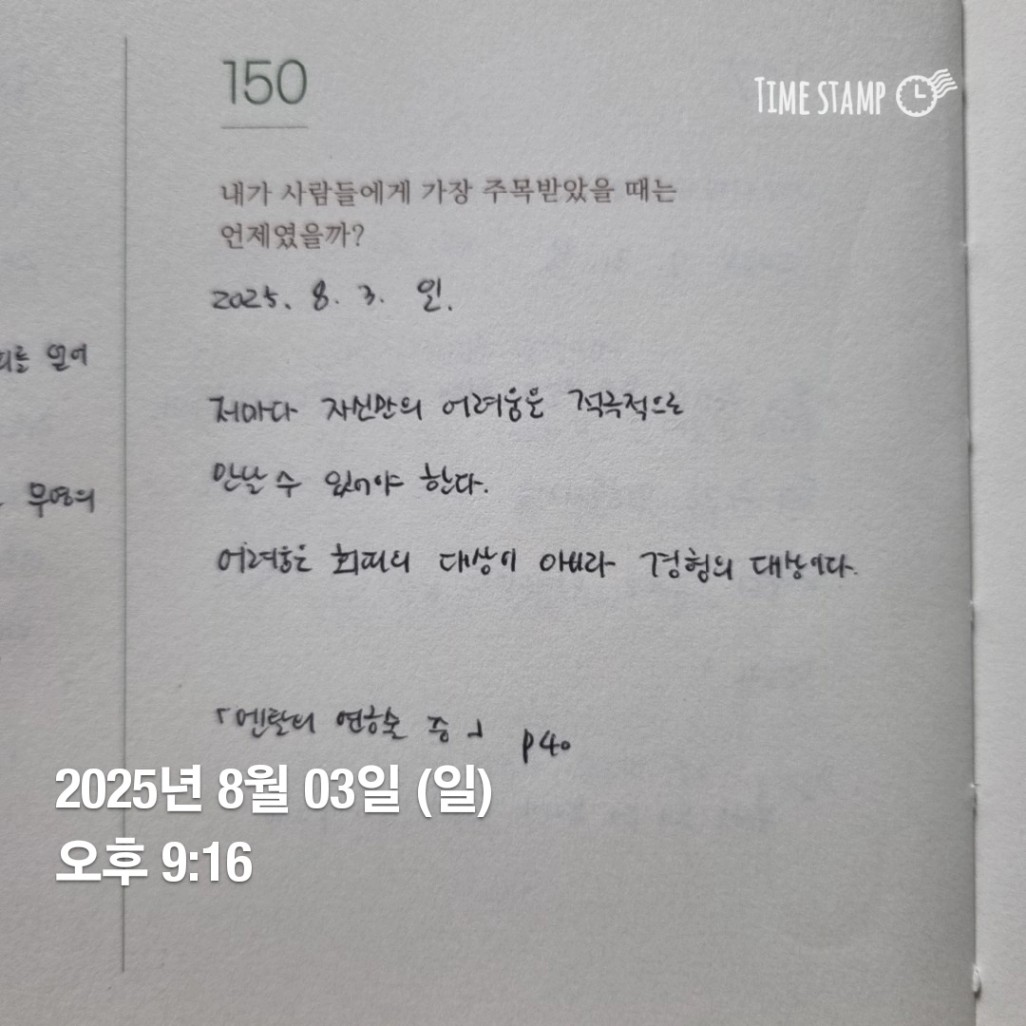 150
TIME STAMP
내가 사람들에게 가장 주목받았을 때는
언제였을까?
2025. 8. 3. 일.
저마다 자신만의 어려움은 적극적으로
만날 수 있어야 한다.
어려움은 회피의 대상이 아니라 경험의 대상이다.
「멘탈의 연금술 중」 p40
를 열어
무명의
2025년 8월 03일 (일)
오후 9:16